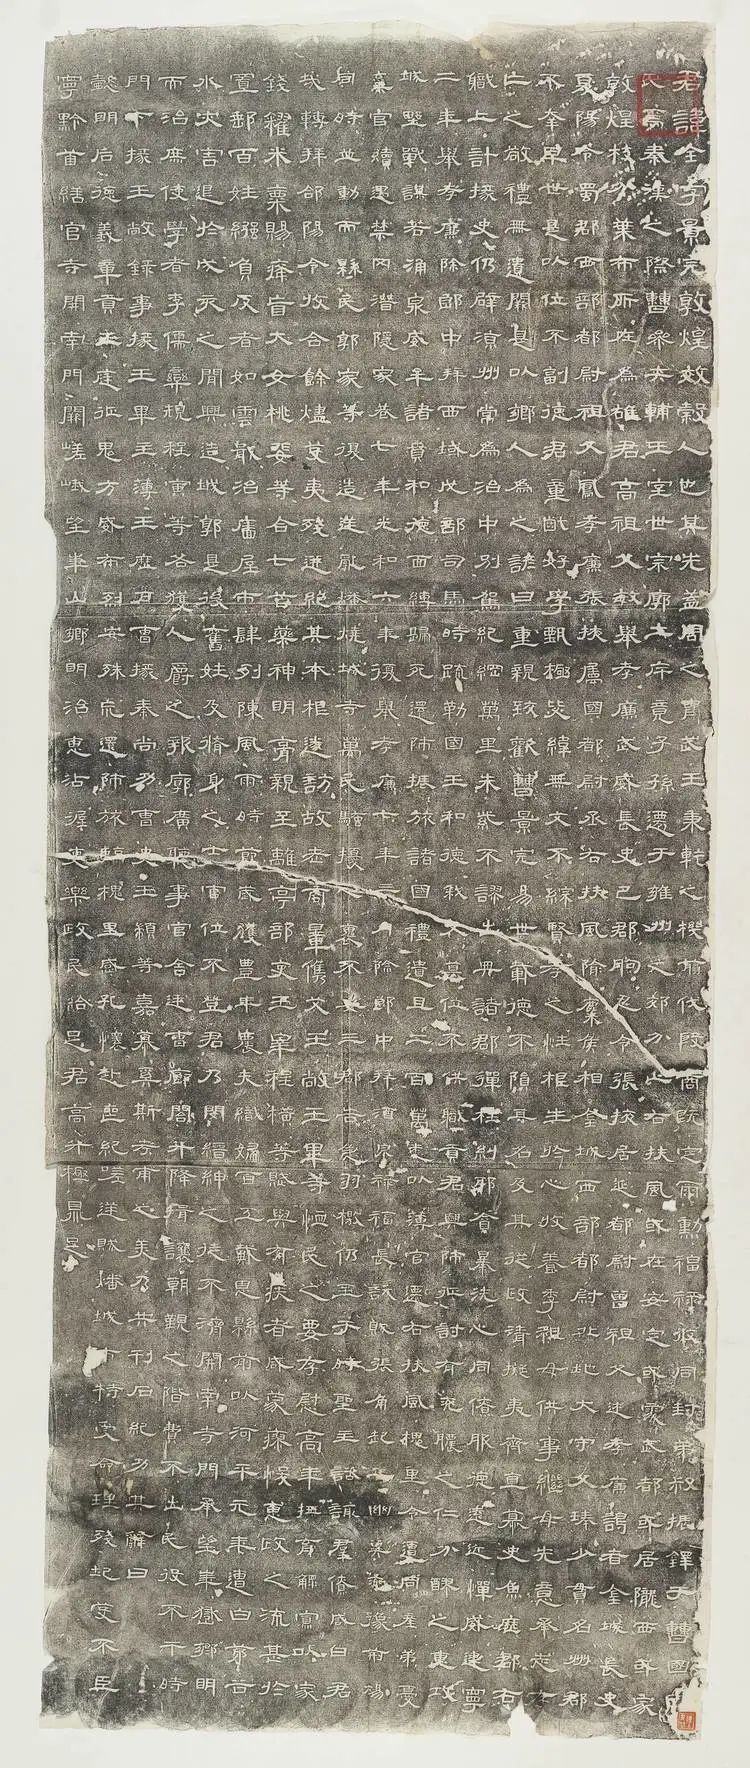 君諱全字景完敦煌效穀人也其先蓋周之冑武王秉乾之機翦伐殷商既定爾勳福祿攸同封弟叔振鐸于曹國
氏焉秦漢之際曹參夾輔王室世宗廓土斥竟子孫遷于雍州之郊分止右扶風或在安定或處武都或居隴西或家
敦煌枝分葉布所在為雄君高祖父敏舉孝廉武威長史巴郡朐忍令張掖居延都尉曾祖父述孝廉謁者金城長史
夏陽令蜀郡西部都尉祖父鳳孝廉張掖屬國都尉丞右扶風隃麋侯相金城西部都尉北地大守父琫少貫名州郡
不幸早世是以位不副德君童齔好學甄極毖緯無文不綜賢孝之性根生於心收養季祖母供事繼母先意承志存
亡之敬禮無遺闕是以鄉人為之諺曰重親致歡曹景完易世載德不隕其名及其從政清擬夷齊直慕史魚歷郡右
職上計掾史仍辟涼州常為治中別駕紀綱萬里朱紫不謬出典諸郡彈枉糾邪貪暴洗心同僚服德遠近憚威建寧
二年舉孝廉除郎中拜西域戊部司馬時疏勒國王和德弒父篡位不供職貢君興師征討有兗膿之仁分醪之惠攻
城野戰謀若涌泉威牟諸賁和德面縛歸死還師振旅諸國禮遺且二百萬悉以薄官遷右扶風槐里令遭同產弟憂
棄官續遇禁网潛隱家巷七年光和六年復舉孝廉七年三月除郎中拜酒泉祿福長訞賊張角起兗豫荊楊
同時並動而縣民郭家等復造逆亂燔燒城寺萬民騷擾人褱不安三郡告急羽檄仍至于時聖主諮諏群僚咸曰君
哉轉拜郃陽令收合餘燼芟夷殘迸絕其本根遂訪故老商量儁艾王敞王畢等恤民之要存慰高年撫育鰥寡以家
錢糴米粟賜癃盲大女桃婓等合七首藥神明膏親至離亭部吏王宰程橫等賦與有疾者咸蒙瘳悛惠政之流甚於
置郵百姓繈負反者如雲戢治廧屋市肆列陳風雨時節歲獲豐年農夫織婦百工戴恩縣前以河平元年遭白茅谷
水灾害退於戌亥之間興造城郭是後舊姓及脩身之士官位不登君乃閔縉紳之徒不濟開南寺門承望華嶽鄉明
而治庶使學者李儒欒規程寅等各獲人爵之報廓廣聽事官舍廷曹廊閣升降揖讓朝覲之階費不出民役不干時
門下掾王敞錄事掾王畢主薄王歷戶曹掾秦尚功曹史王顓等嘉慕奚斯考甫之美乃共刊石紀功其辭曰
懿明后德義章貢王庭征鬼方威布烈安殊巟還師旅臨槐里感孔懷赴喪紀嗟逆賊燔城市特受命理殘圮芟不臣
寧黔首繕官寺開南門闕嵯峨望華山鄉明治惠沾渥吏樂政民給足君高升極鼎足